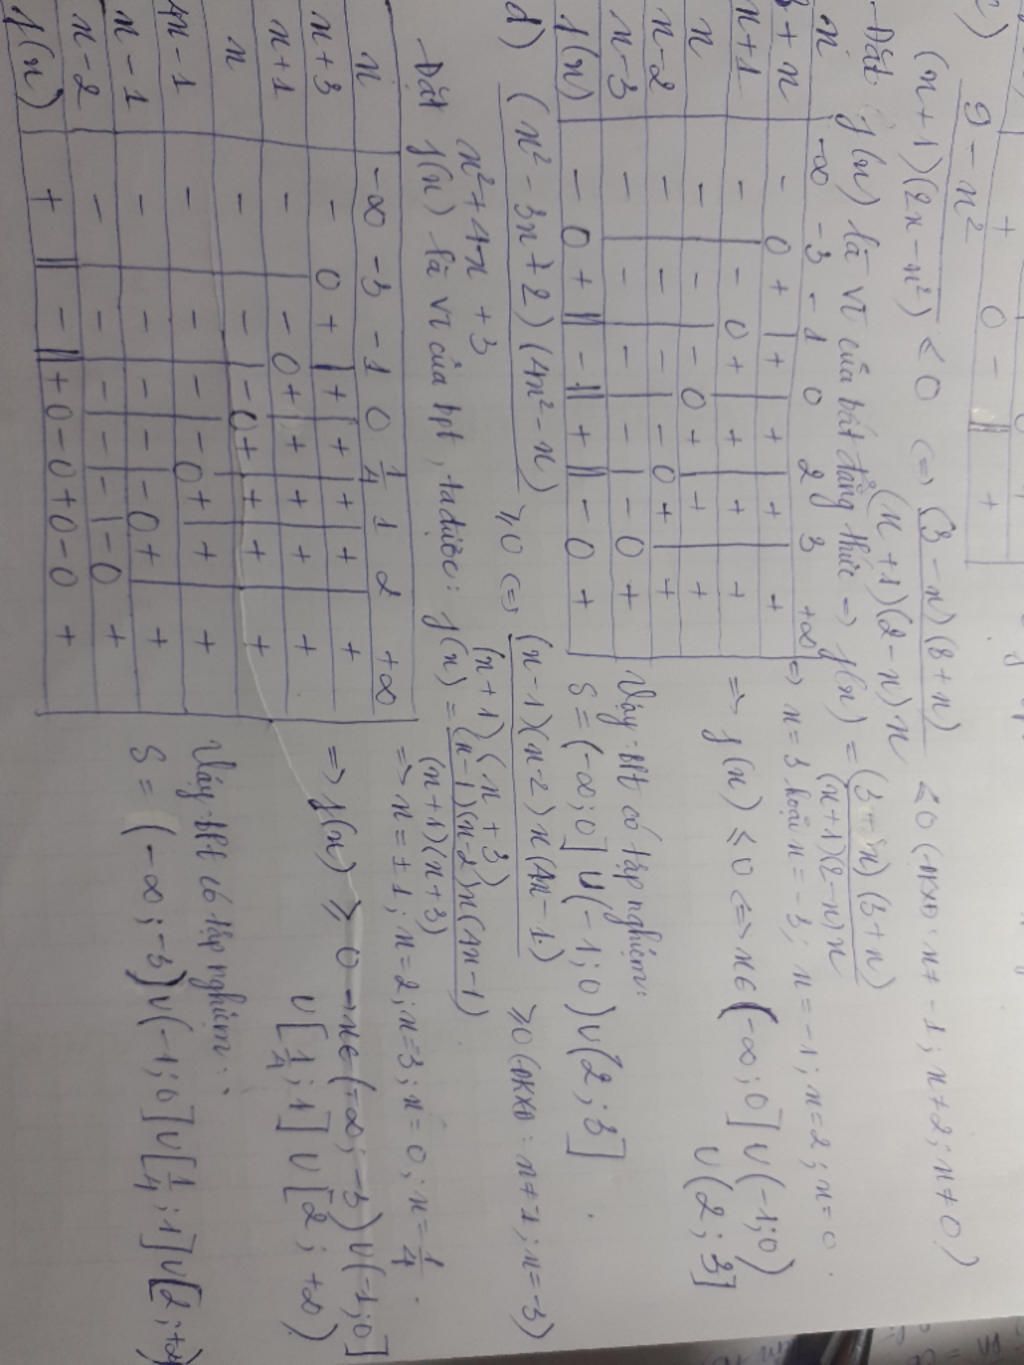 c) 9 - x² / (x+1)(2x-x²) ≤ 0 ⇔ (3-x)(3+x) / (x+1)(2-x)x ≤ 0 (ĐKXĐ: x≠-1; x≠2; x≠0)
Đặt f(x) là VT của bất đẳng thức ⇒ f(x) = (3-x)(3+x) / (x+1)(2-x)x
⇒ x=3 hoặc x=-3; x=-1; x=2; x=0.
x -∞ -3 -1 0 2 3 +∞
3+x - 0 + | + | + | + | +
x+1 - - 0 + + + +
x - - - | - 0 + + +
x-2 - - - | - 0 + +
x-3 - - - - | - 0 +
f(x) - 0 + || - || + || - 0 +
⇒ f(x) ≤ 0 ⇔ x∈(-∞;0] ∪ (-1;0)
∪ (2;3]
Vậy bpt có tập nghiệm:
S = (-∞;0] ∪ (-1;0) ∪ (2;3]
d) (x² - 3x + 2)(4x² - x) / x² + 4x + 3 ≥ 0 ⇔ (x-1)(x-2)x(4x-1) / (x+1)(x+3) ≥ 0 (ĐKXĐ: x≠-1; x=-3)
Đặt f(x) là VT của bpt, ta được: f(x) = (x-1)(x-2)x(4x-1) / (x+1)(x+3)
⇒ x=±1; x=2; x=3; x=0; x=1/4.
x -∞ -3 -1 0 1/4 1 2 +∞
x+3 - 0 + | + | + | + | + | + +
x+1 - | - 0 + | + + + +
x - - | - 0 + + + +
4x-1 - - - | - 0 + + +
x-1 - - - - | - 0 + +
x-2 - - - - - | - 0 +
f(x) + || - || + 0 - 0 + 0 - 0 +
⇒ f(x) ≥ 0 → x∈(-∞;-3) ∪ (-1;0]
∪ [1/4;1] ∪ [2;+∞)
Vậy bpt có tập nghiệm:
S = (-∞;-3) ∪ (-1;0] ∪ [1/4;1] ∪ [2;+∞)